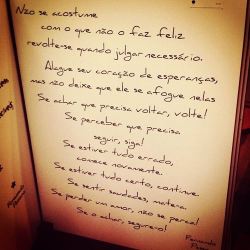 Não se acostume
com o que não o faz feliz
revolte-se quando julgar necessário.
Alague seu coração de esperanças,
mas não deixe que ele se afogue nelas
Se achar que precisa voltar, volte!
Se perceber que precisa
seguir, siga!
Se estiver tudo errado,
comece novamente.
Se estiver tudo certo, continue.
Se sentir saudades, matera.
Se perder um amor, não se perca!
Se o achar, segure-o!
Fernando